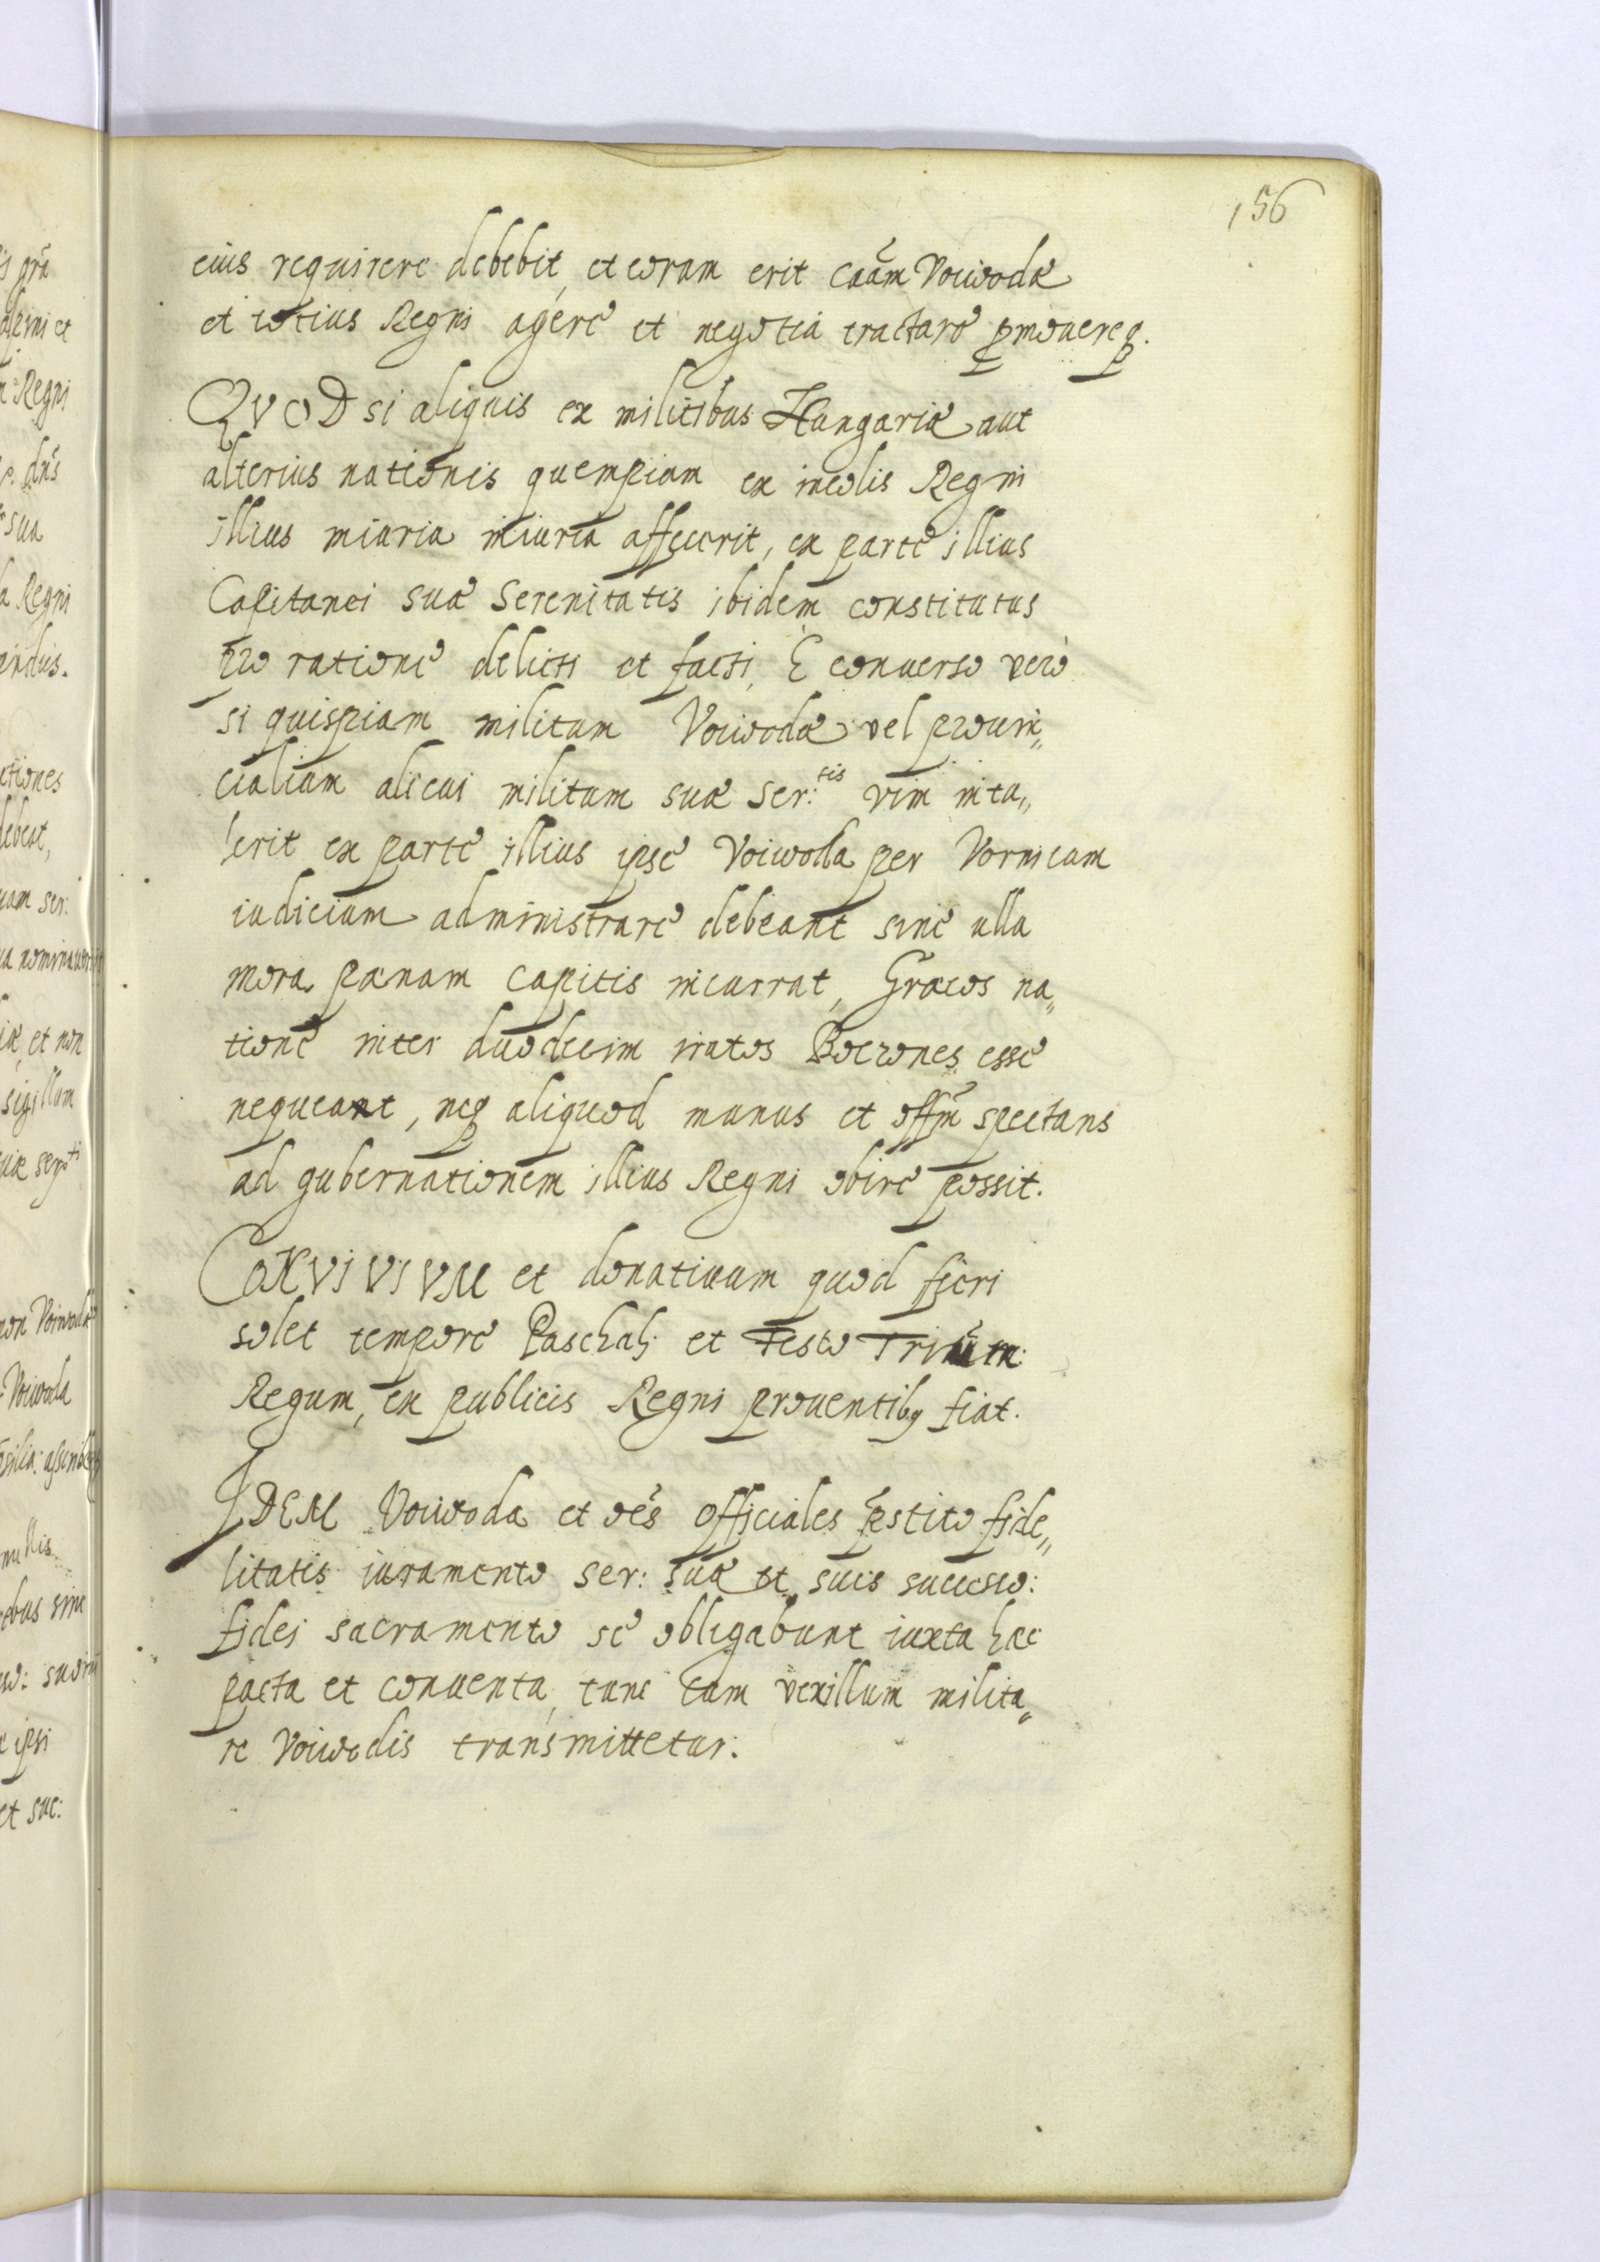 156
eius requirere debebit, et eorum erit caãm Voiwodæ
et totius Regni agere et negotia tractare p̱mouereq.
QVOD si aliquis ex militibus Hungariæ aut
alterius nationis quempiam ex incolis Regni
illius iniuria affecerit, ex parte illius
Capitanei suæ Serenitatis ibidem constitutus
pro ratione delicti et facti, È conuerso verò
si quispiam militum Voiwodæ vel prouin„
cialium alicui militum suæ Ser:tis vim intu„
lerit ex parte illius ipse Voiwoda per Vornicum
iudicium administrare debeant sine ulla
mora, pœnam capitis incurrat, Græcos na„
tione inter duodecim Boerones esse
nequeant, neq aliquod munus et offm̃ spectans
ad gubernationem illius Regni obire possit.
CONVIVIVM et donatiuum quod fieri
solet tempore Paschali et Festo Trium
Regum, ex publicis Regni prouentibq fiat.
IDEM Voiwoda et oẽs Officiales p̃stito fide„
litatis iuramento ser: suæ et suis succeso:
fidei sacramento se obligabunt iuxta hæc
pacta et conuenta, tunc tum vexillum milita„
re Voiwodis transmittetur.